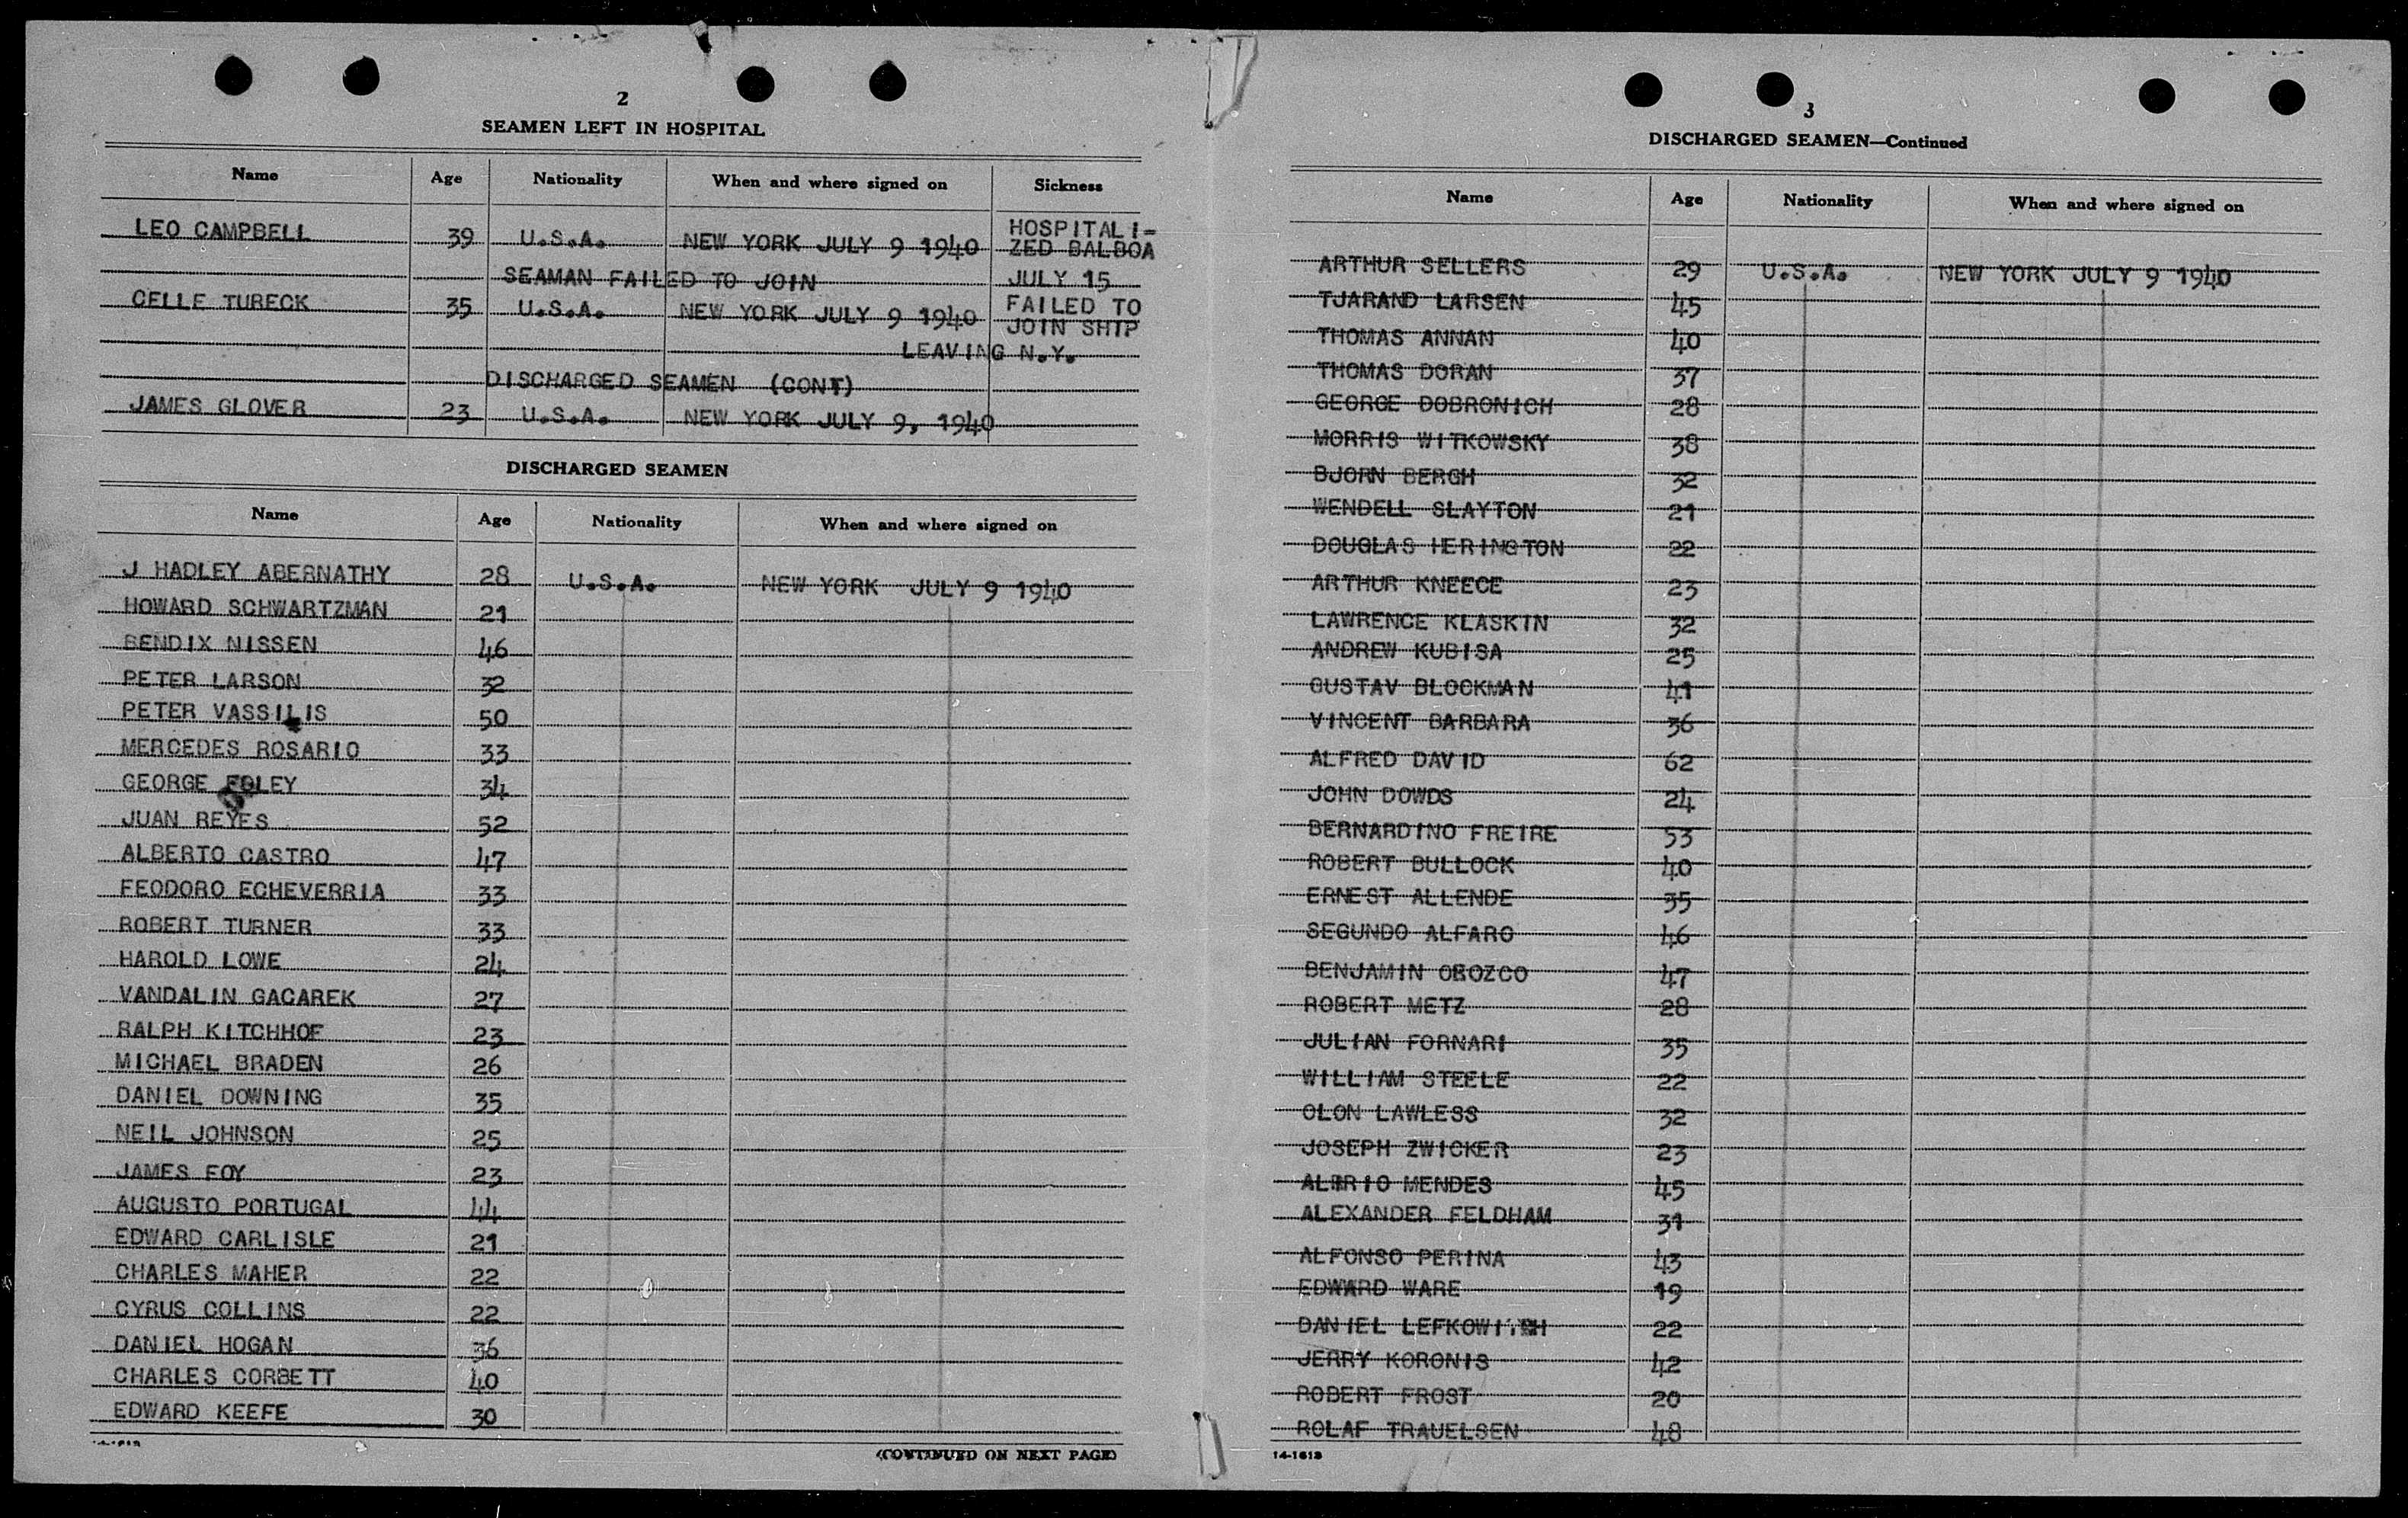 2
SEAMEN LEFT IN HOSPITAL
Name Age Nationality When and where signed on Sickness
LEO CAMPBELL 39 U.S.A. NEW YORK JULY 9 1940 HOSPITALI-
ZED BALBOA
SEAMAN FAILED TO JOIN JULY 15
CELLE TURECK 35 U.S.A. NEW YORK JULY 9 1940 FAILED TO
JOIN SHIP
LEAVING N.Y.
DISCHARGED SEAMEN (CONT)
JAMES GLOVER 23 U.S.A. NEW YORK JULY 9, 1940
DISCHARGED SEAMEN
Name Age Nationality When and where signed on
J HADLEY ABERNATHY 28 U.S.A. NEW YORK JULY 9 1940
HOWARD SCHWARTZMAN 21
BENDIX NISSEN 46
PETER LARSON 32
PETER VASSILIS 50
MERCEDES ROSARIO 33
GEORGE 34
JUAN REYES 52
ALBERTO CASTRO 47
FEODORO ECHEVERRIA 33
ROBERT TURNER 33
HAROLD LOWE 24
VANDALIN GACAREK 27
RALPH KITCHHOF 23
MICHAEL BRADEN 26
DANIEL DOWNING 35
NEIL JOHNSON 25
JAMES FOY 23
AUGUSTO PORTUGAL 44
EDWARD CARLISLE 21
CHARLES MAHER 22
CYRUS COLLINS 22
DANIEL HOGAN 36
CHARLES CORBETT 40
EDWARD KEEFE 30
(CONTINUED ON NEXT PAGE)
3
DISCHARGED SEAMEN—Continued
Name Age Nationality When and where signed on
ARTHUR SELLERS 29 U.S.A. NEW YORK JULY 9 1940
TJARAND LARSEN 45
THOMAS ANNAN 40
THOMAS DORAN 37
GEORGE DOBRONICH 28
MORRIS WITKOWSKY 38
BJORN BERGH 32
WENDELL SLAYTON 21
DOUGLAS HERINGTON 22
ARTHUR KNEECE 23
LAWRENCE KLASKIN 32
ANDREW KUBISA 25
GUSTAV BLOCKMAN 41
VINCENT BARBARA 36
ALFRED DAVID 62
JOHN DOWDS 24
BERNARDINO FREIRE 53
ROBERT BULLOCK 40
ERNEST ALLENDE 35
SEGUNDO ALFARO 46
BENJAMIN OROZCO 47
ROBERT METZ 28
JULIAN FORNARI 35
WILLIAM STEELE 22
OLON LAWLESS 32
JOSEPH ZWICKER 23
MENDES 45
ALEXANDER FELDHAM 31
ALFONSO PERINA 43
EDWARD WARE 19
DANIEL 22
JERRY KORONIS 42
ROBERT FROST 20
ROLAF TRAUELSEN 48
14-1613